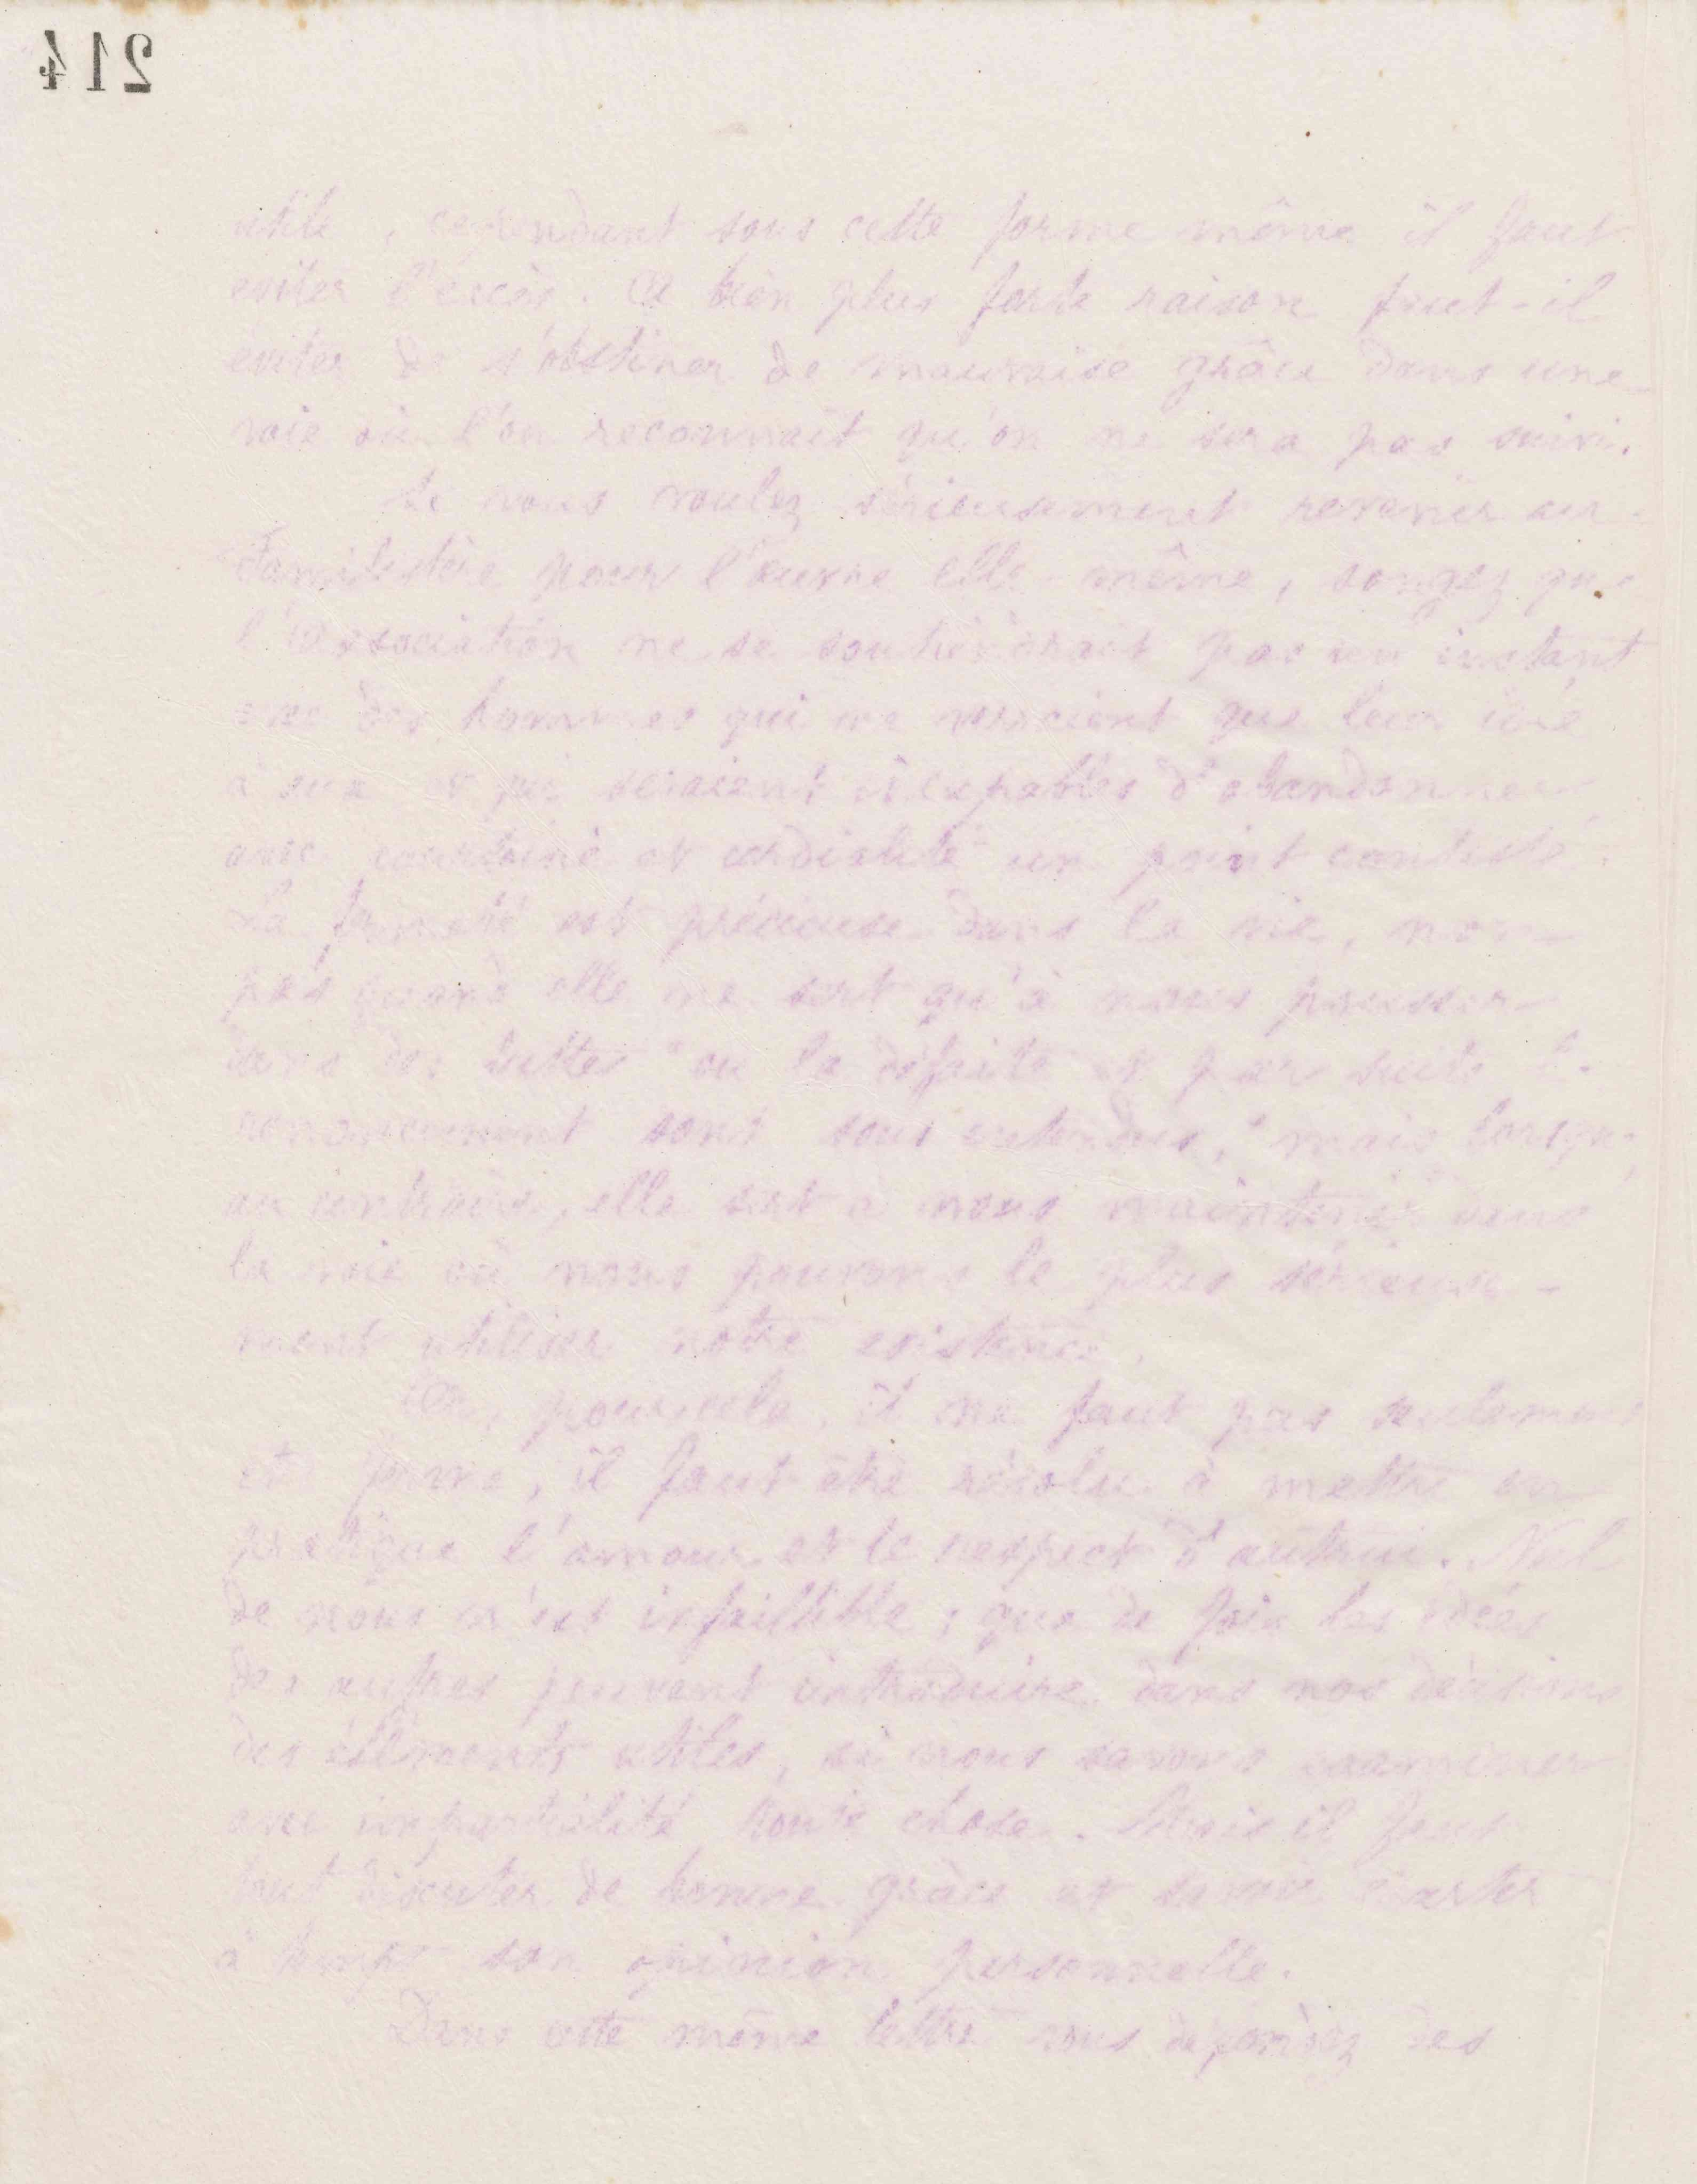 214
utile, cependant sous cette forme même il faut
éviter l'excès. A bien plus forte raison faut-il
éviter de s'obstiner de mauvaise grâce dans une
voie où l'on reconnait qu'on ne sera pas suivi.
Si vous voulez sérieusement revenir au
Familistère pour l'œuvre elle-même, songez que
l'Association ne se soutiendrait pas un instant
avec des hommes qui ne verraient que leur idée
à eux et qui seraient incapables d'abandonner
avec courtoisie et cordialité un point contesté.
La fermeté est précieuse dans la vie, non
pas quand elle ne sert qu'à nous pousser
dans des luttes "où la défaite et par suite le
renoncement sont sous entendus," mais lorsque,
au contraire, elle sert à nous maintenir dans
la voie où nous pouvons le plus sérieuse-
ment utiliser notre existence.
Or, pour cela, il ne faut pas seulement
être ferme, il faut être résolu à mettre en
pratique l'amour et le respect d'autrui. Nul
de nous n'est infaillible; que de fois les idées
des autres peuvent introduire dans nos décisions
des éléments utiles, si nous savons examiner
avec impartialité toute chose. Mais il faut
tout discuter de bonne grâce et savoir écarter
à temps son opinion personnelle.
Dans cette même lettre vous des